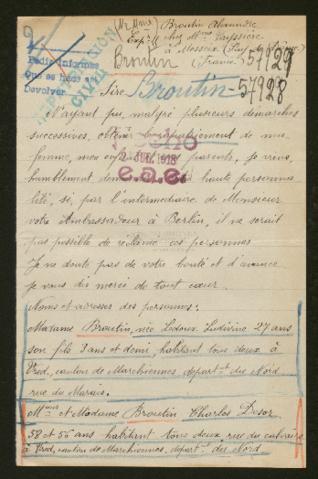 (Mr Mme) Broutin Alexandre
Exp: chez Mme Vayssière
à Messeix (Puy de Dôme)
Broutin (France)
57929
54928
Pedir informes
Que se haga
Devolver
REPATRIACION
CIVIL
Sire
Broutin
N'ayant pu, malgré plusieurs démarches
successives, obtenir le rapatriement de ma
femme, mon enfant et mes parents, je viens,
humblement haute personna
2 JUL 1918
lité, si, par l'intermédiaire de Monsieur
votre Ambassadeur à Berlin, il ne serait
pas possible de réclamer ces personnes
Je ne doute pas de votre bonté et d'avance
je vous dis merci de tout cœur.
Noms et adresses des personnes:
Madame Broutin, née Ledoux Ludivine 27 ans
son fils 3 ans et demi, habitant tous deux à
Vred, canton de Marchiennes départt du Nord
rue du Marais.
et Madame Broutin Charles Desor
58 et 56 ans habitant tous deux, rue du calvaire
à Vred, canton de Marchiennes, départt du Nord